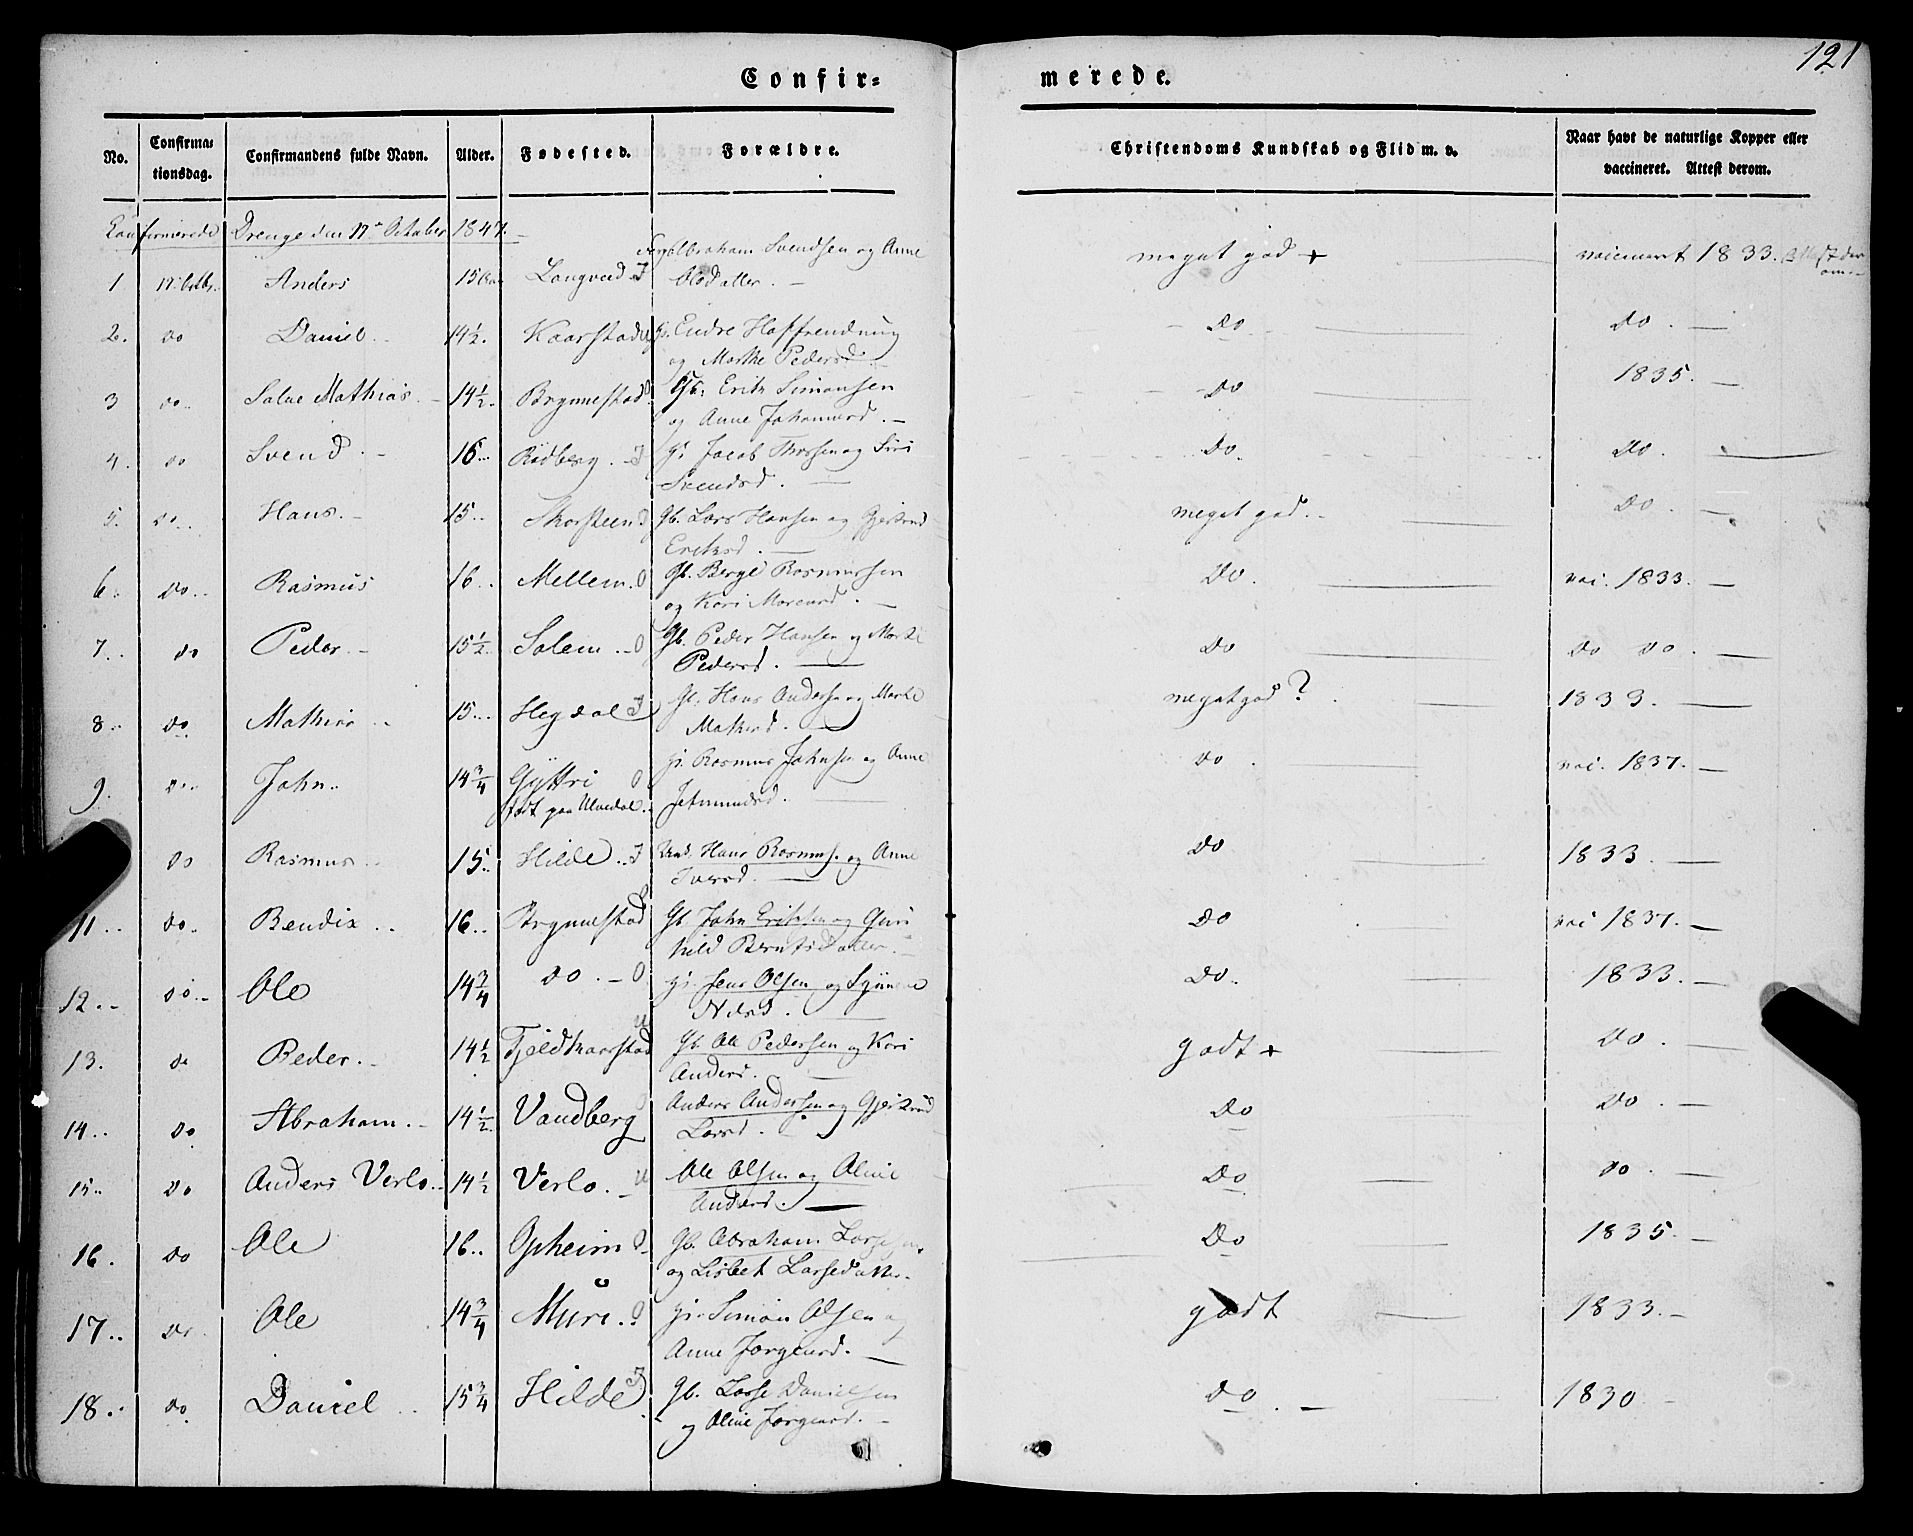 121
Confir=
merede.
No.
Confirma=
tionsdag.
Confirmandens fulde Navn.
Alder.
Fødested.
Forældre.
Christendoms Kundskab og Flid m. v.
Naar havt de naturlige Kopper eller
vaccineret. Attest derom.
Drenge den 17de October 1847.
Abraham Svendsen og Anne
1 Anders 15 Langved J Olsdatter. meget god + 1833.
2. do Daniel 14½. Kaarstad Endre
og Marthe Pedersd do do.
3 do Salve Mathias 14½ Brynnestad Gb. Erik Simonsen
og Anne do 1835.
4. do Svend 16 Rødberg. J Jacob og Siri
Svendsd. do. do.
5. do Hans. 15 Skorsteen Gb. Lars Hansen og Gjertrud
Eriksd. meget god. do.
6. do Rasmus 16.. Mellem. O Gb. Børge Rasmussen
og Kari do. vac. 1833.
7. do Peder 15½ Solem. O Gb. Peder Hansen og Marthe
Pedersd. do do do.
8. do Mathias 15 Hegdal J Hans Andersen og Marthe
Mathisd. meget god? 1833.
9. do John 14¾ Gyttri O Rasmus Johnsen og Anne
født paa Ulvedal. do vac. 1837.
do Rasmus 15. Hilde.. J Hans Rasmuss. og Anne
Iversd. do 1833.
11.. do. Bendix 16.. Brynnestad Gb. John Eriksen og Guri
hild Berntsdatter. do vac 1837.
12.- do Ole 14¾ do. O Jens Olsen og Synneve
Nielsd. do. 1833.
13. do Peder 14½ Fjeldkaarstad Gb. Ole Pedersen og Kari
Andersd. godt + do.
14.. do Abraham. 14½ Vandberg Anders Andersen og Gjertrud
Larsd. do do.
15.. do Anders Verlo.. 14½ Verlo. Ole Olsen og Oline
Andersd. do do
16. do Ole 16.. Opheim O Gb. Abraham
og Lisbet Larsedatter. do 1835.
17.. do Ole 14¾ Muri. O Simon Olsen og
Anne Jørgensd. godt 1833.
18. do Daniel 15¾ Hilde J Gb. Lasse Danielsen
og Oline Jørgensd. do. 1830